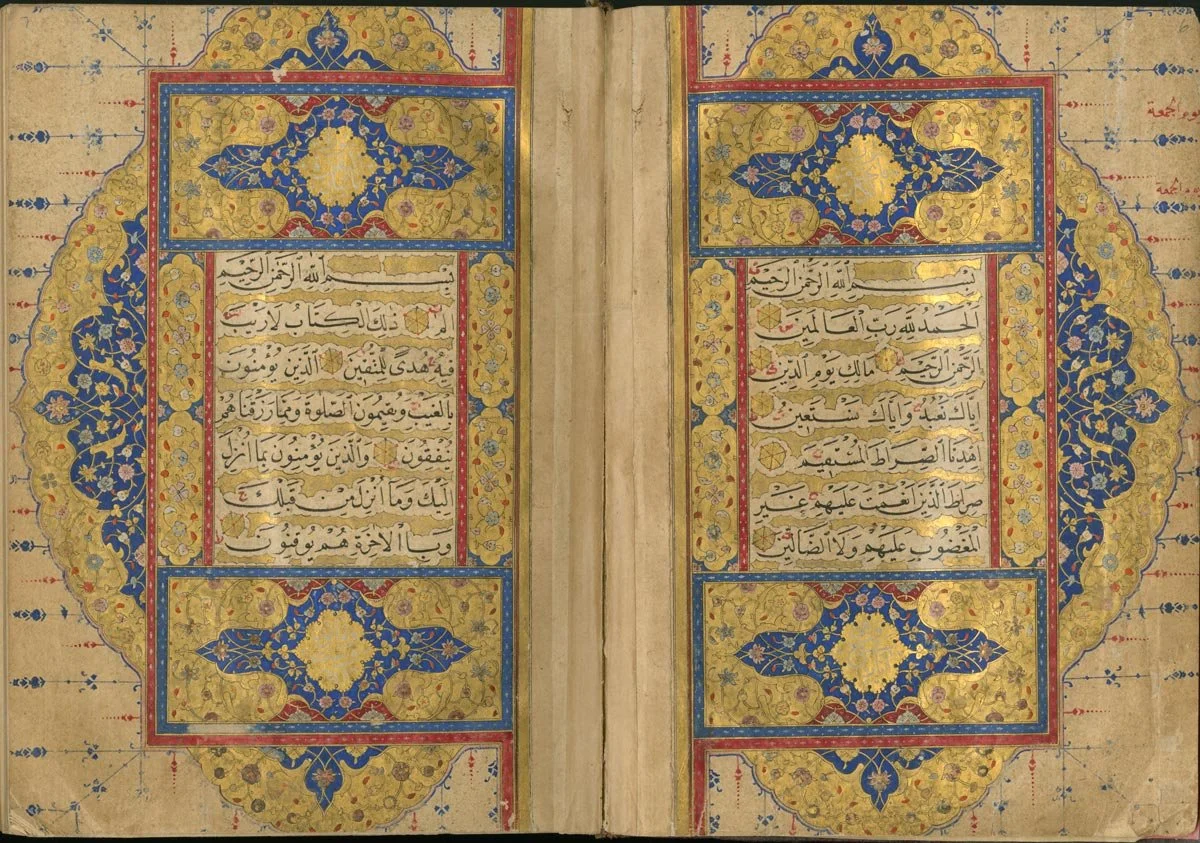 بِسْمِ اللَّهِ الرَّحْمٰنِ الرَّحِيمِ
اَلْحَمْدُ لِلَّهِ رَبِّ الْعَالَمِينَ
الرَّحْمٰنِ الرَّحِيمِ مَالِكِ يَوْمِ الدِّينِ
اِيَّاكَ نَعْبُدُ وَاِيَّاكَ نَسْتَعِينُ
اِهْدِنَا الصِّرَاطَ الْمُسْتَقِيمَ
صِرَاطَ الَّذِينَ اَنْعَمْتَ عَلَيْهِمْ غَيْرِ
الْمَغْضُوبِ عَلَيْهِمْ وَلَا الضَّالِّينَ
بِسْمِ اللَّهِ الرَّحْمٰنِ الرَّحِيمِ
الم ذٰلِكَ الْكِتَابُ لَا رَيْبَ
فِيهِ هُدًى لِلْمُتَّقِينَ الَّذِينَ يُؤْمِنُونَ
بِالْغَيْبِ وَيُقِيمُونَ الصَّلٰوةَ وَمِمَّا رَزَقْنَاهُمْ
يُنْفِقُونَ وَالَّذِينَ يُؤْمِنُونَ بِمَا اُنْزِلَ
اِلَيْكَ وَمَا اُنْزِلَ مِنْ قَبْلِكَ
وَبِاالْاٰخِرَةِ هُمْ يُوقِنُونَ